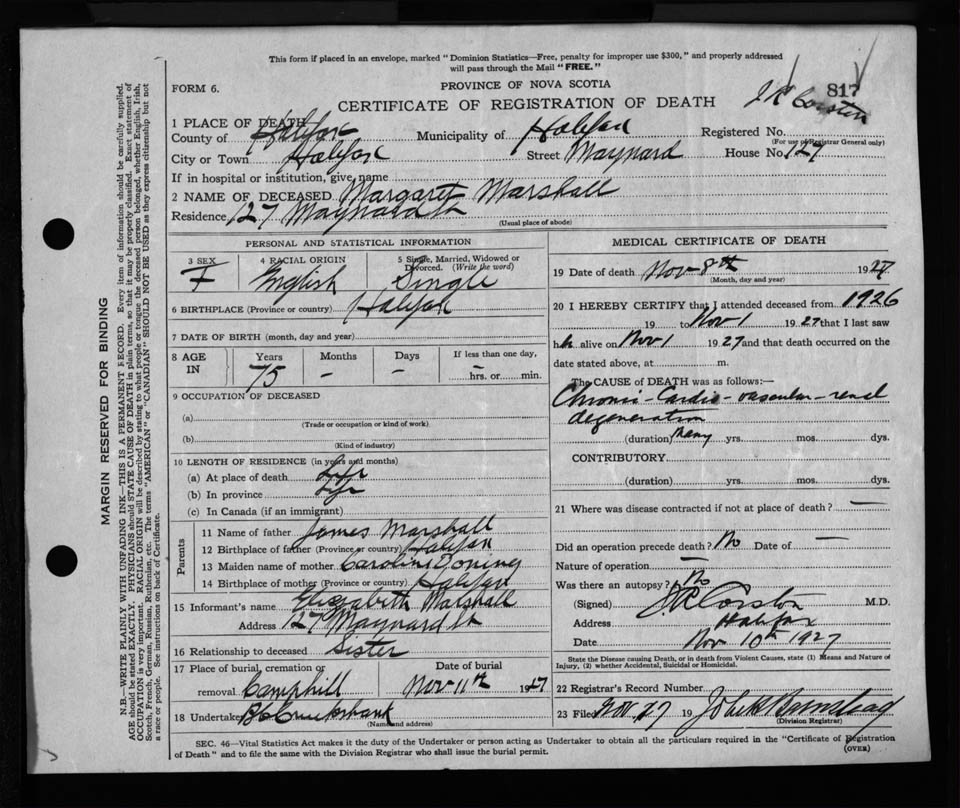 This form if placed in an envelope, marked "Dominion Statistics—Free, penalty for improper use $300," and properly addressed
will pass through the Mail "FREE."
FORM 6.
PROVINCE OF NOVA SCOTIA
817
CERTIFICATE OF REGISTRATION OF DEATH
J R Corston
1 PLACE OF DEATH
County of Halifax Municipality of Halifax Registered No.
(For use of Registrar General only)
City or Town Halifax Street Maynard House No. 127
If in hospital or institution, give name
2 NAME OF DECEASED Margaret Marshall
Residence 127 Maynard St
(Usual place of abode)
PERSONAL AND STATISTICAL INFORMATION
3 SEX 4 RACIAL ORIGIN 5 Single, Married, Widowed or Divorced. (Write the word)
F English Single
6 BIRTHPLACE (Province or country) Halifax
7 DATE OF BIRTH (month, day and year)
8 AGE IN Years Months Days If less than one day,
75 — — — hrs. or min.
9 OCCUPATION OF DECEASED
(a)
(Trade or occupation or kind of work)
(b)
(Kind of industry)
10 LENGTH OF RESIDENCE (in years and months)
(a) At place of death Life
(b) In province Life
(c) In Canada (if an immigrant)
Parents
11 Name of father James Marshall
12 Birthplace of father (Province or country) Halifax
13 Maiden name of mother Caroline
14 Birthplace of mother (Province or country) Halifax
15 Informant's name Elizabeth Marshall
Address 127 Maynard St
16 Relationship to deceased Sister
17 Place of burial, cremation or Date of burial
removal Camphill Nov 11th 1927
18 Undertaker Cruikshank
(Name and address)
MEDICAL CERTIFICATE OF DEATH
19 Date of death Nov 8th 1927
(Month, day and year)
20 I HEREBY CERTIFY that I attended deceased from 1926
19 to Nov 1 1927 that I last saw
h alive on Nov 1 1927 and that death occurred on the
date stated above, at m.
The CAUSE OF DEATH was as follows:—
Chronic-Cardio-vascular-renal
degeneration
(duration) Many yrs. mos. dys.
CONTRIBUTORY
(duration) yrs. mos. dys.
21 Where was disease contracted if not at place of death? —
Did an operation precede death? No Date of —
Nature of operation —
Was there an autopsy? No
(Signed) J R Corston M.D.
Address Halifax
Date Nov 10th 1927
State the Disease causing Death, or in death from Violent Causes, state (1) Means and Nature of
Injury, (2) whether Accidental, Suicidal or Homicidal.
22 Registrar's Record Number
23 Filed Nov 27 19
(Division Registrar)
SEC. 46—Vital Statistics Act makes it the duty of the Undertaker or person acting as Undertaker to obtain all the particulars required in the "Certificate of Registration
of Death" and to file the same with the Division Registrar who shall issue the burial permit.
(OVER)
MARGIN RESERVED FOR BINDING
N.B.—WRITE PLAINLY WITH UNFADING INK—THIS IS A PERMANENT RECORD. Every item of information should be carefully supplied.
AGE should be stated EXACTLY. PHYSICIANS should STATE CAUSE OF DEATH in plain terms, so that it may be properly classified. Exact statement of
OCCUPATION is very important. RACIAL ORIGIN will be described by stating to what people or tongue the deceased person belonged, whether English, Irish,
Scotch, French, German, Russian, Ruthenian, etc. The terms "AMERICAN" or "CANADIAN" SHOULD NOT BE USED as they express citizenship but not
a race or people. See instructions on back of Certificate.